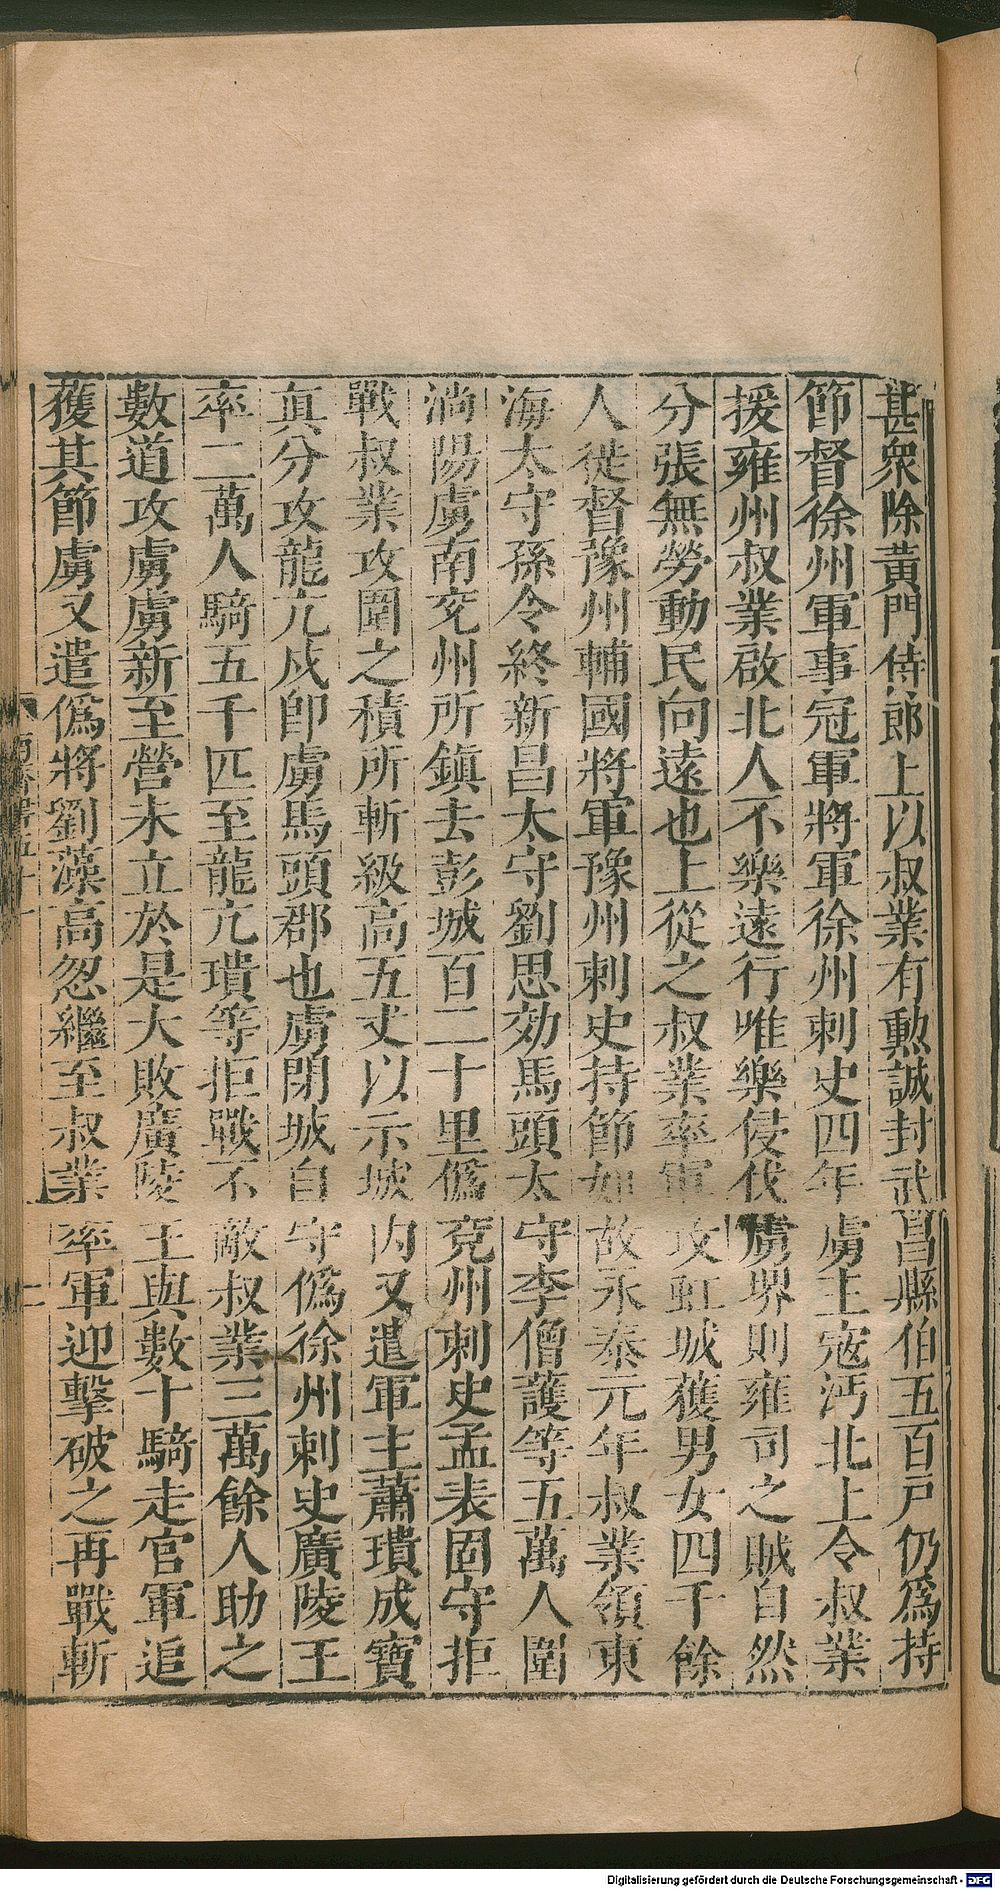 甚衆除黃門侍郎上以叔業有勲誠封武昌縣伯五百戸仍爲持
節督徐州軍事冠軍將軍徐州刺史四年虜主寇沔北上令叔業
援雍州叔業啟北人不樂遠行唯樂侵伐虜堺則雍司之賊自然
分張無勞動民向遠也上從之叔業率軍攻虹城獲男女四千餘
人徙督豫州輔國將軍豫州刺史持節如故永泰元年叔業領東
海太守孫令終新昌太守劉思効馬頭太守李僧護等五萬人圍
渦陽虜南兗州所鎮去彭城百二十里僞兗州刺史孟表固守拒
戰叔業攻圍之積所斬級高五丈以示城內又遣軍主蕭璝成寶
眞分攻龍亢戍卽虜馬頭郡也虜閉城自守僞徐州刺史廣陵王
率二萬人騎五千匹至龍亢璝等拒戰不敵叔業三萬餘人助之
數道攻虜虜新至營未立於是大敗廣陵王與數十騎走官軍追
獲其節虜又遣僞將劉藻高忽繼至叔業率軍迎擊破之再戰斬
Digitalisierung gefördert durch die Deutsche Forschungsgemeinschaft - DFG